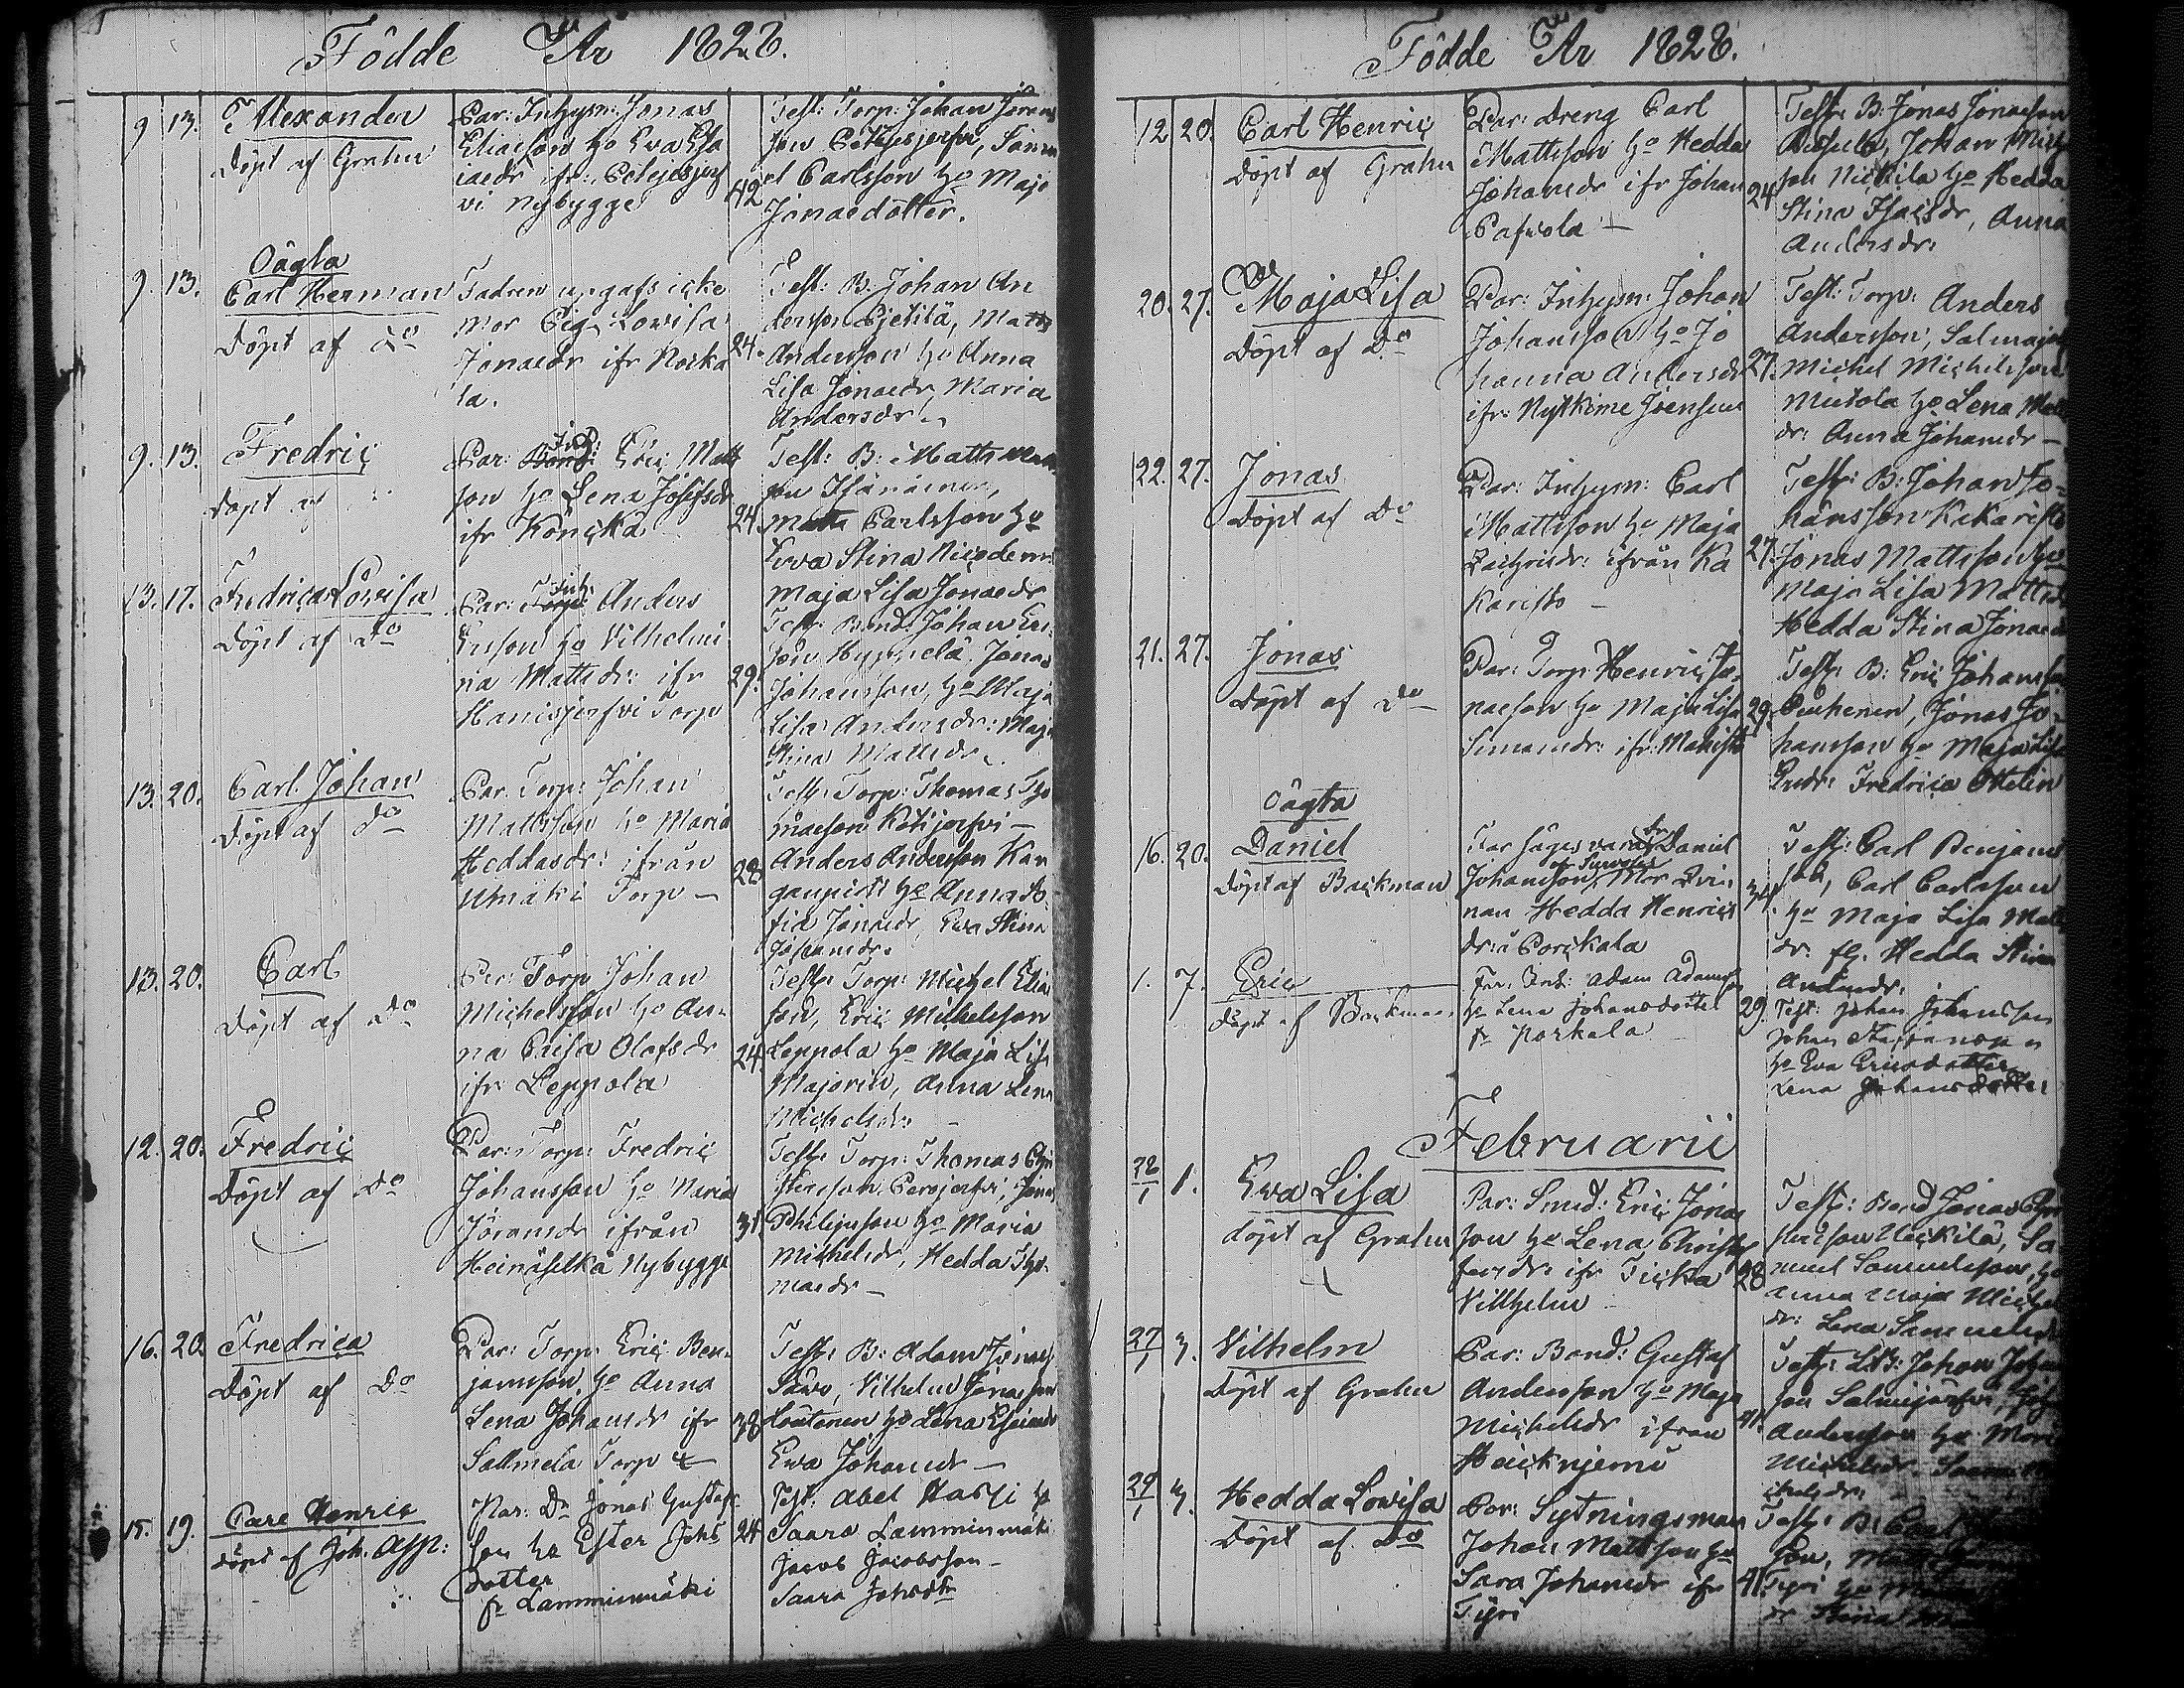 Födde År 1828.
9 13. Alexander
Döpt af Grahn
Par: Inhysm: Jonas
Eliasson ho Eva Esa
iaedr ifr: Petejesjerf
vi Nybygge
42
Test: Torp: Johan Jörans
son Petejesjerfvi, Samu
el Carlsson ho Maja
Jonaedotter.
9. 13. Oägta
Carl Herman
Döpt af Do
Fadren upgafs icke
Mor Pig. Lowisa
Jonaedr ifr Nocka
la.
24.
Test: B: Johan An
dersson Pjetilä, Matts
Andersson ho Anna
Lisa Jonaedr, Maria
Andersdr
9. 13. Fredric
Döpt af
Par: Eric Matts
son ho Lena Josefsdr
ifr Könckä
24.
Test: B: Matts
son
Matts Carlsson ho
Evva Stina Nicodemi
Maja Lisa Jonaedr
13. 17. Fredrica Lovisa
Döpt af Do
Par: Inh: Anders
Ersson ho Vilhelmi
na Mattsdr: ifr
Hanisjerfvi Torp
29.
Test: Bond: Johan Eri
son Hyppelä, Jonas
Johansson, ho Maja
Lisa Andersdr: Maja
Stina Mattsdr.
13. 20. Carl Johan
Döpt af Do
Par. Torp: Johan
Mattsson ho Maria
Heddasdr: ifrån
Ulmäki Torp
28
Test: Torp: Thomas Tho
maeson Kotijerfvi
Anders Andersson Kan
ganpist ho Anna So
fia Jonaedr, Eva Stina
Johansdr.
13. 20. Carl
Döpt af Do
Par: Torp Johan
Michelsson ho An
na Caisa Olofsdr
ifr: Leppola
24.
Test: Torp: Michel Elia
son, Eric Michelsson
Leppola ho Maja Lisa
Majorin, Anna Lena
Michelsdr
12. 20. Fredric
Döpt af Do
Par: Torp: Fredric
Johansson ho Maria
Jöransdr ifrån
Heinäselkä Nybygge
31.
Test: Torp: Thomas Chri
stersson Perojerfvi, Jonas
Philipsson ho Maria
Michelsdr, Hedda Tho
maedr
16. 20. Fredrica
Döpt af Do
Par: Torp: Eric Ben
jamsson, ho Anna
Lena Johansdr ifr
Sallmela Torp
38
Test: B: Adam Jonaes
Sawo, Vilhelm Jonaesson
Loutonen ho Lena Esaiaedr
Ewa Johansdr
15. 19. Carl Henric
döpt af Joh. Asp:
Par: Dr Jonas Gustafs
son ho Ester Johs
dotter
fr Lamminmäki
24
Test: Abel Harji ho
Saara Lamminmäki
Jacob Jacobsson
Saara Johsdtr
Födde År 1828.
12 20. Carl Henric
Döpt af Grahn
Par: Dreng Carl
Mattsson ho Hedda
Johansdr ifr Johan
Pafvola
24
Test: B: Jonas Jonaeson
Johan Mich
son Nickila ho Hedda
Stina Isacsdr, Anna
Andersdr:
20. 27. Maja Lisa
Döpt af Do
Par: Inhysm: Johan
Johansson ho Jo
hanna Andersdr
ifr: Nylkime Joensuu
27.
Test: Torp: Anders
Andersson, Salmajerf
Michel Michelsson
Mietola ho Lena Matts
dr: Anna Johansdr
22. 27. Jonas
Döpt af Do
Par: Inhysm: Carl
Mattsson ho Maja
Zachrisdr: ifrån Ka
karisto
27.
Test: B: Johan Jo
hansson Kakaristo
Jonas Mattsson ho
Maja Lisa Mattsdr
Hedda Stina Jonaedr
21. 27. Jonas
Döpt af Do
Par: Torp Henric Jo
naeson ho Maja Lisa
Simonsdr: ifr: Mahisto
29.
Test: B: Eric Johansson
Penhenen, Jonas Jo
hansson ho Maja Lisa
Ersdr: Fredrica Ottelin
Oägta
16. 20. Daniel
Döpt af Backman
Far säges vara dr. Daniel
Johansson, Mor Qvin
nan Hedda Henrics
dr: i Porckala
34.
Test: Carl Benjams
son, Carl Carlsson
ho Maja Lisa Matts
dr. fl. Hedda Stina
Andersdr.
1. 7. Eric
döpt af Backman
Far: Ind: Adam Adamsson
ho Lena Johansdotter
fr Porkala
29.
Test: Johan Johansson
Johan Staffansson
ho Eva Ericsdotter
Lena Johansdotter
Februarii
28/1 1. Eva Lisa
döpt af Grahn
Par: Smed: Eric Jonas
son ho Lena Christof
fersdr: ifr Ticka
Villhelm
28
Test: Bond Jonas Chri
stersson Nickilä, Sa
muel Samuelsson, ho
Anna Maja Michels
dr: Lena Samuelsdr
27/1 3. Vilhelm
Döpt af Grahn
Par: Bond: Gustaf
Andersson ho Maja
Michelsdr ifrån
Heicknjemi
41.
Test: LB: Johan Johans
son Salmijärfvi, Joh
Andersson ho Maria
Michelsdr.
29/1 3. Hedda Lowisa
Döpt af Do
Par: Sytningsman
Johan Mattsson ho
Sara Johansdr ifr
Tyri
41.
Test: B: Carl
son,
Tyri ho
dr Stina